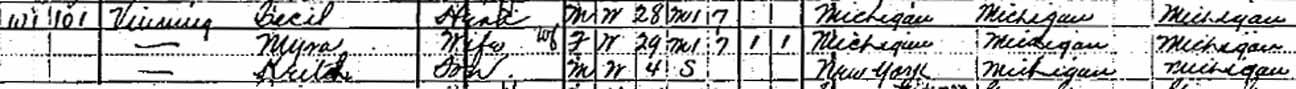 101 Vinning Cecil Head M W 28 M1 7 1 Michigan Michigan Michigan
— Myra Wife F W 29 M1 7 1 1 Michigan Michigan Michigan
— Son M W 4 S New York Michigan Michigan